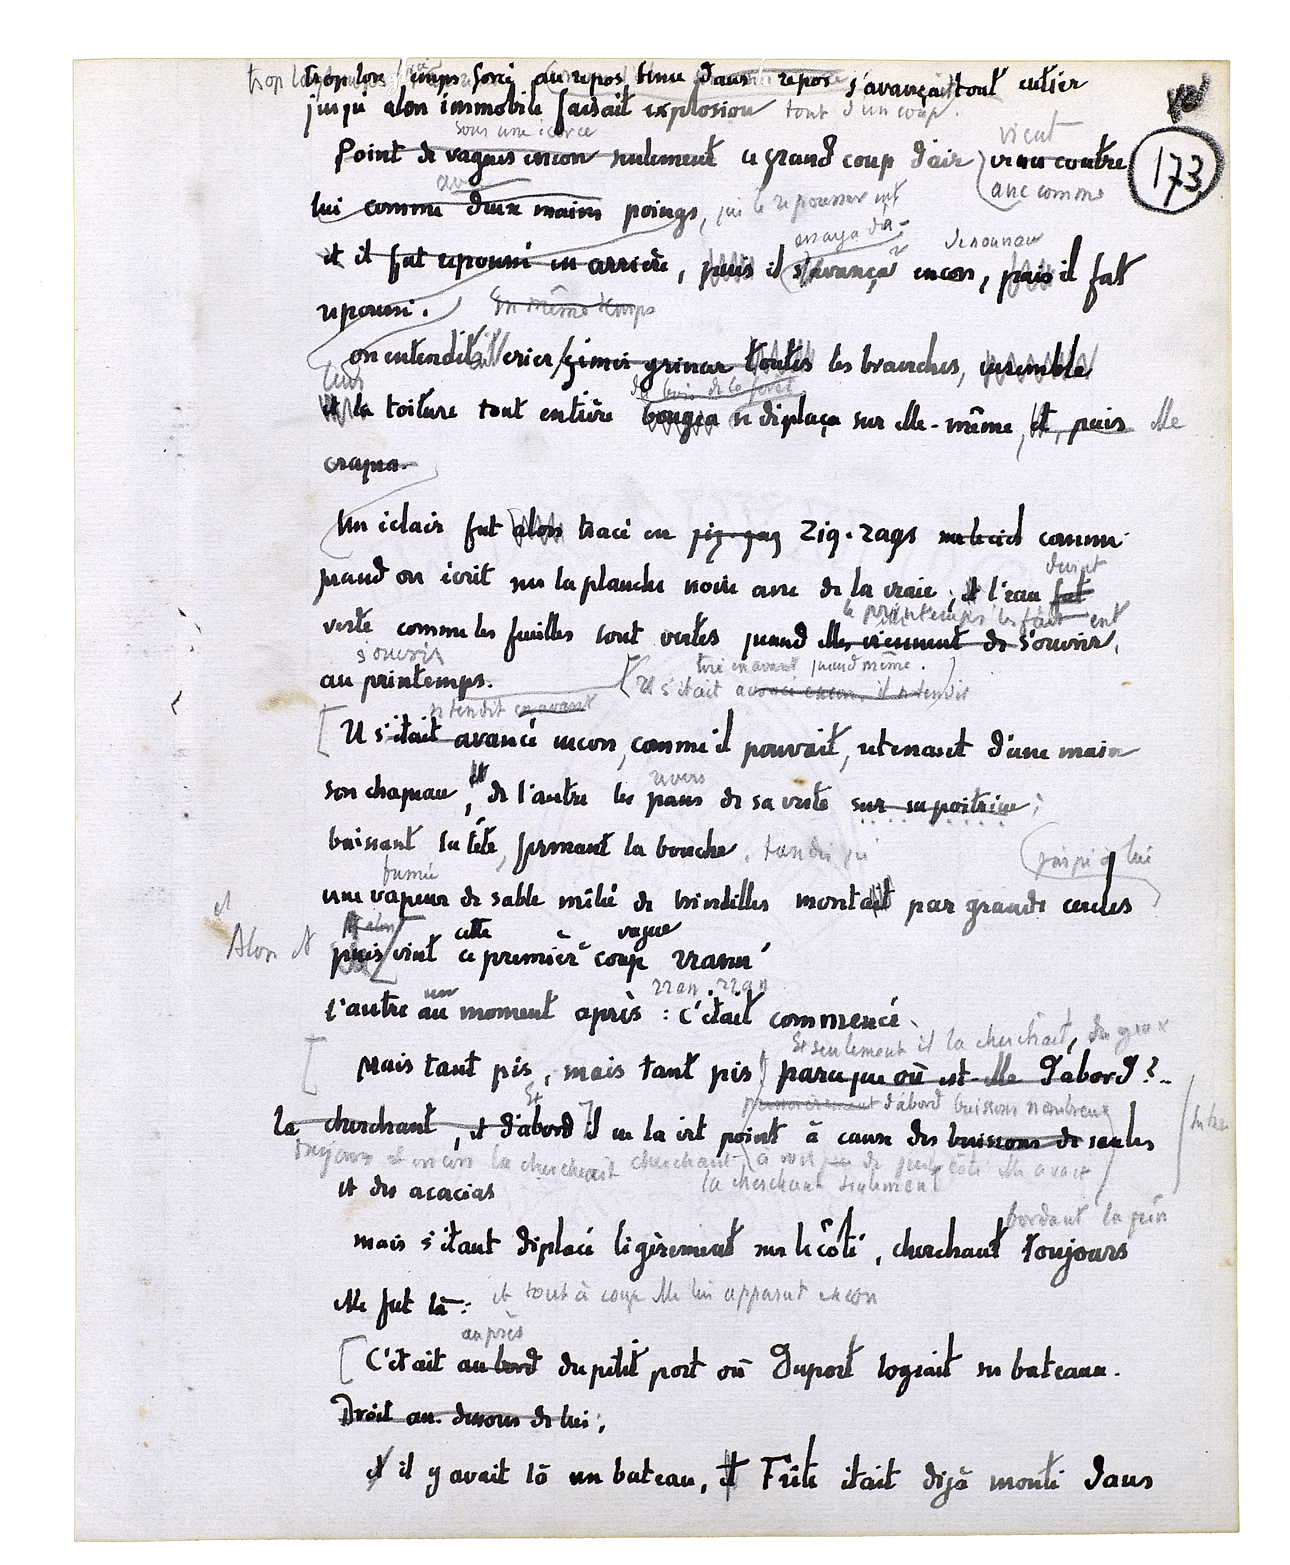 trop longtemps forcé au repos tenu dans le repos s'avançait tout entier
jusqu'alors immobile faisait explosion tout d'un coup.
sous une écorce
vient
173
Point de vagues encore seulement ce grand coup d'air venu contre
avec comme
lui comme deux mains poings, qui le repoussèrent
essaya d'a-
de nouveau
et il fut repoussé en arrière, puis il s'avança encore, puis il fut
repoussé. En même temps
on entendit crier gémir grincer toutes les branches, ensemble
leur
du bois de la forêt
et la toiture tout entière bougea se déplaça sur elle-même, et, puis elle
craqua.
Un éclair fut alors tracé en zig-zag zig-zags sur le ciel comme
quand on écrit sur la planche noire avec de la craie ; et l'eau fut
devint
le printemps les fait
verte comme les feuilles sont vertes quand elles viennent de s'ouvrir,
s'ouvrir
au printemps.
tiré en avant quand même.
Il s'était avancé encore, il se tendit
se tendit en avant
Il s'était avancé encore, comme il pouvait, retenant d'une main
revers
son chapeau, et de l'autre les pans de sa veste sur sa poitrine ;
baissant la tête, fermant la bouche, tandis qu'
jusqu'à lui
fumée
une vapeur de sable mêlé de brindilles montait par grands cercles
et
Alors et
et alors
cette vague
puis vint ce premier coup vranu'
un
vran, vran.
l'autre au moment après : c'était commencé
Et seulement il la cherchait,
Mais tant pis, mais tant pis parce que où est-elle d'abord ?..
Et
premièrement d'abord buissons nombreux
la cherchant, et d'abord il ne la vit point à cause des buissons de saules
toujours et encore la cherchait cherchant
la cherchant seulement
et des acacias
bordant la
mais s'étant déplacé légèrement sur le côté, cherchant toujours
elle fut là : et tout à coup elle lui apparut encore
auprès
C'était au bord du petit port où Duport logeait ses bateaux.
Droit au-dessous de lui ;
et il y avait là un bateau, et Frite était déjà monté dans